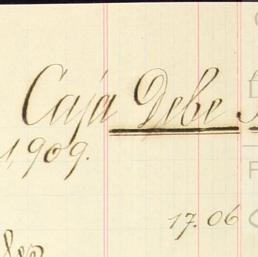 Caja Debe
1,909.
17.06